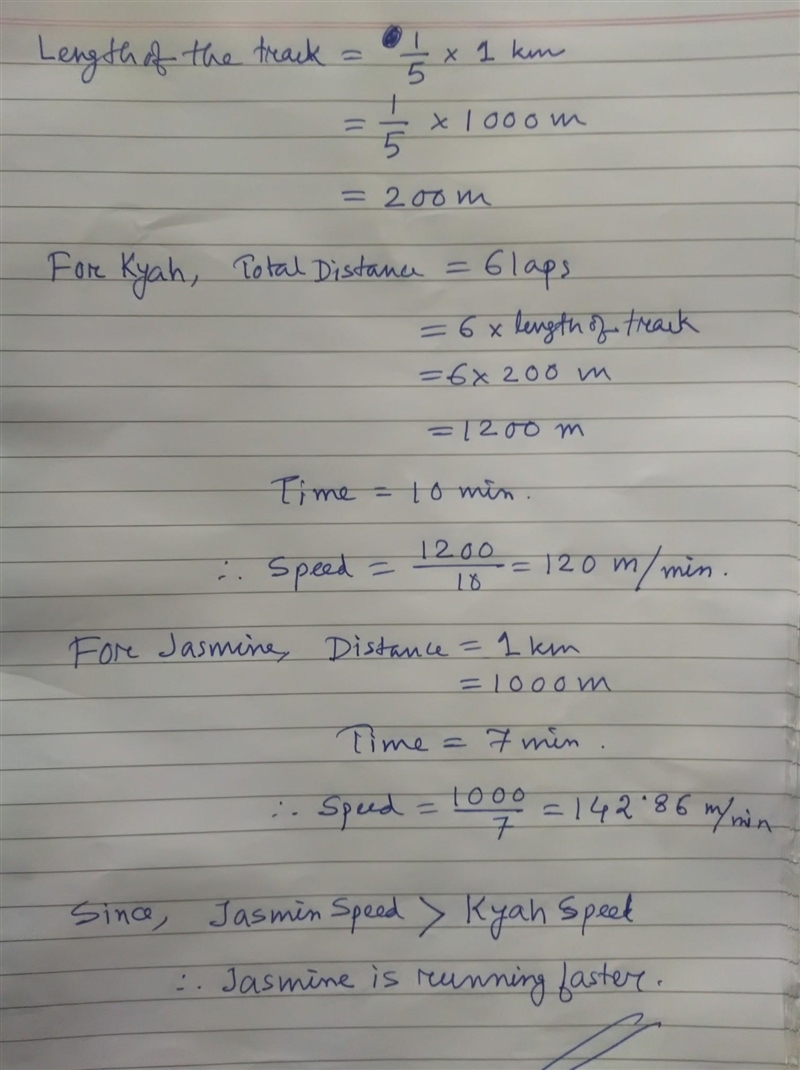 Length of the track = 1/5 x 1 km
= 1/5 x 1000 m
= 200 m
For Kyah, Total Distance = 6 laps
= 6 x length of track
= 6 x 200 m
= 1200 m
Time = 10 min.
∴ Speed = 1200/10 = 120 m/min.
For Jasmine, Distance = 1 km
= 1000 m
Time = 7 min.
∴ Speed = 1000/7 = 142.86 m/min
Since, Jasmin Speed > Kyah Speed
∴ Jasmine is running faster.